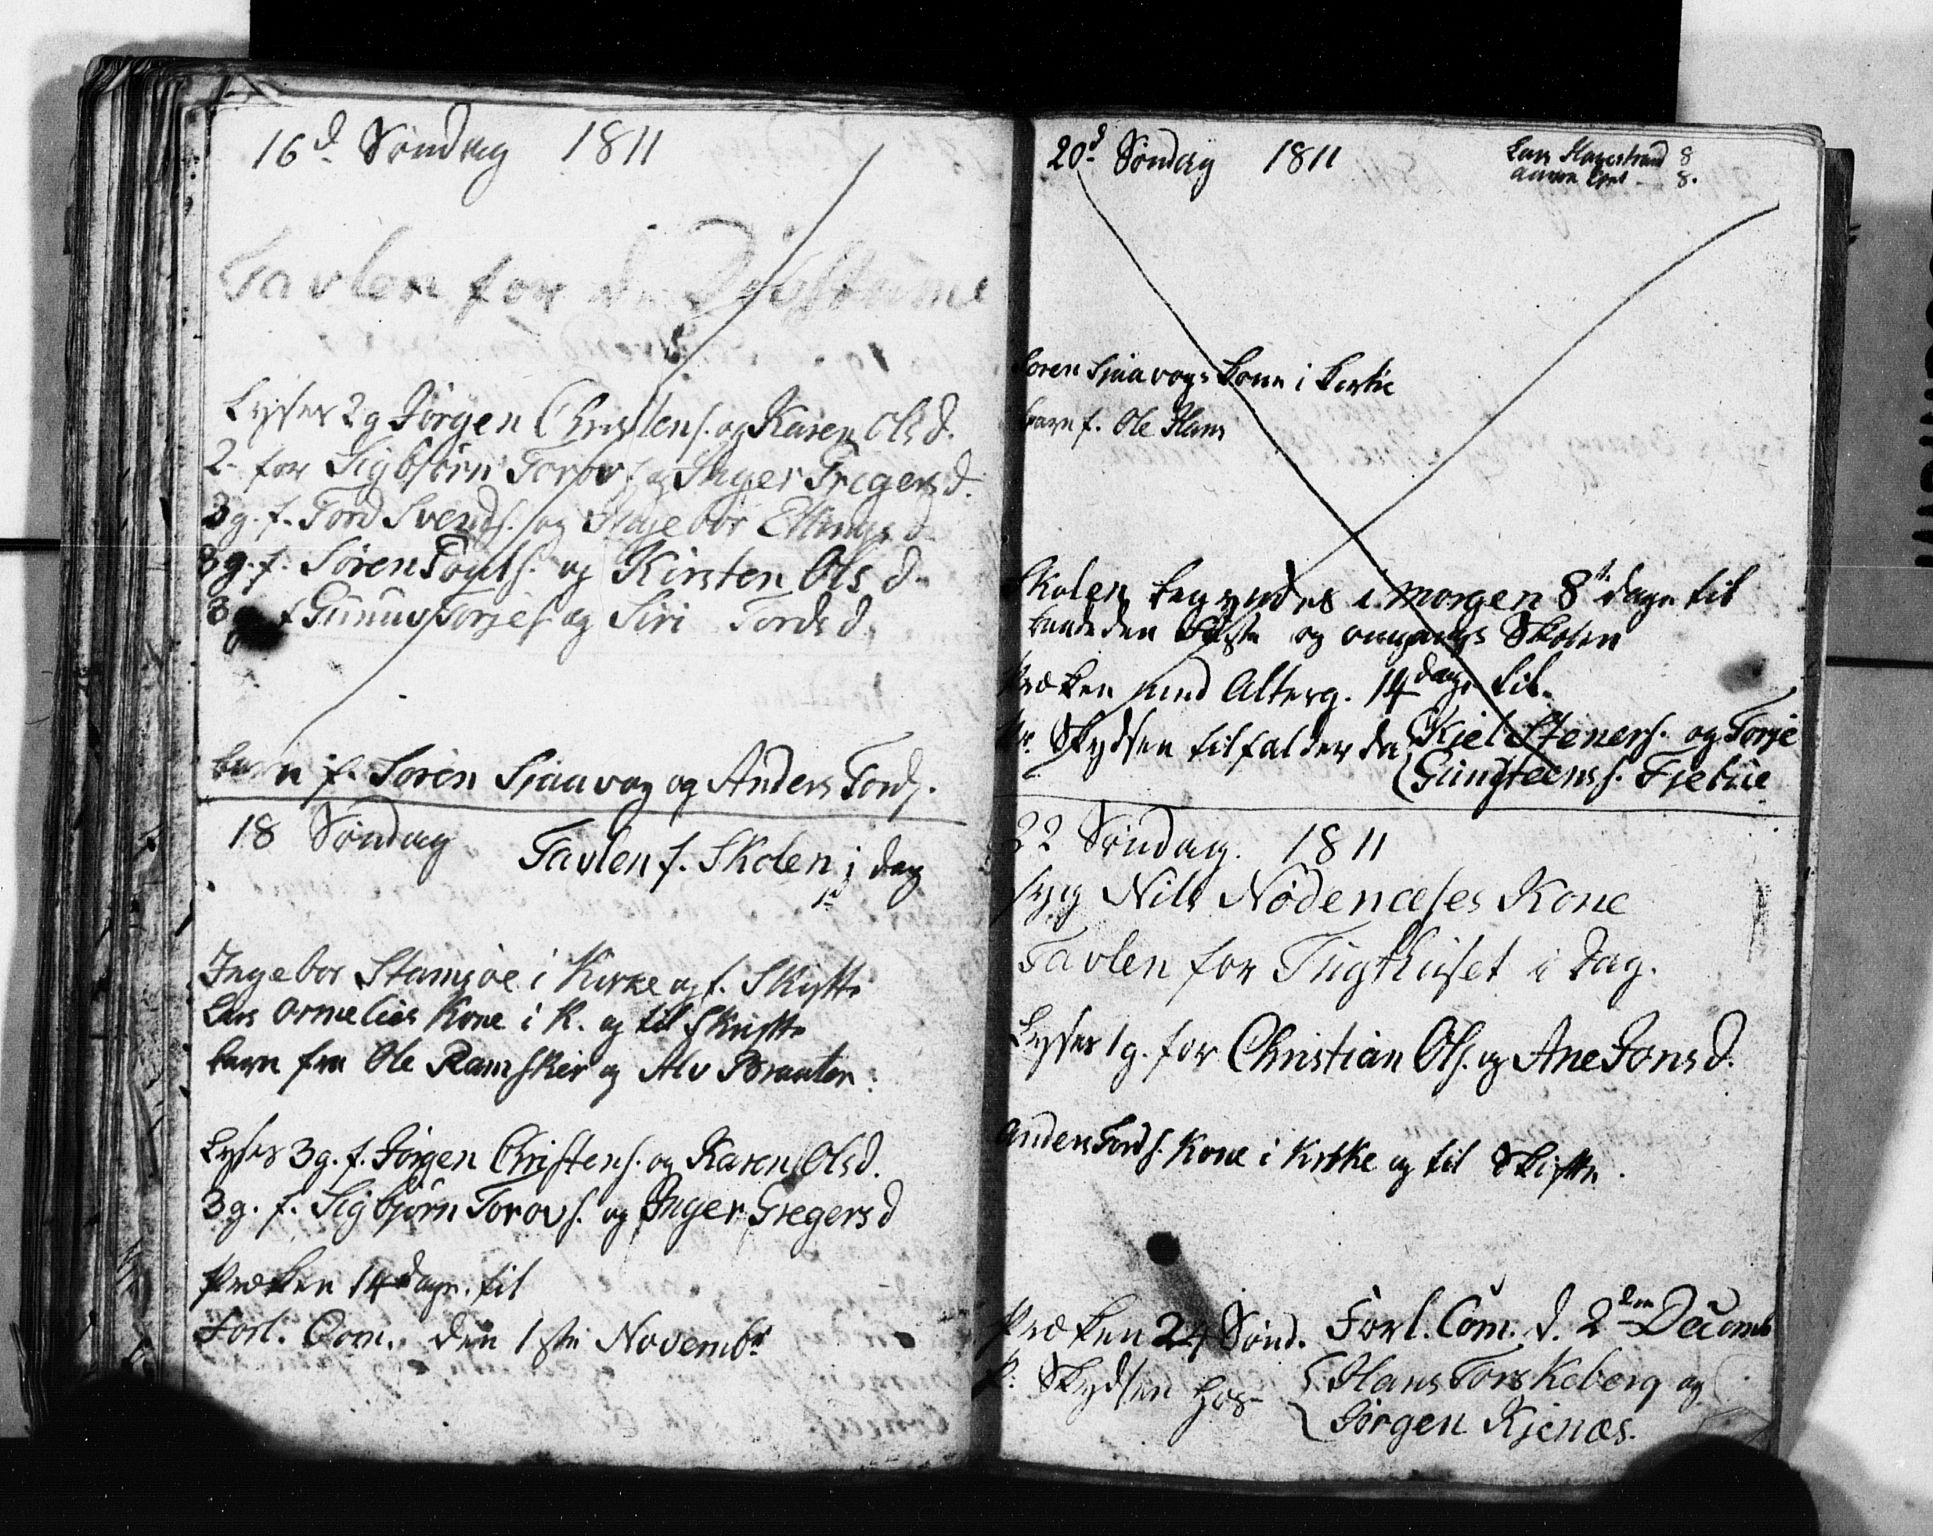 16d Søndag 1811
Tavlen for de Døvstume
Lyses 2 g Jørgen Christens. og Karen Olsd.
2- for Sigbjørn Torovs. og Inger Gregersd.
3 g. f. Tord Svends. og Ingebor Ellingsd.
3 g. f. Søren Pouls. og Kirsten Olsd.
3 g. f Gunus Torjes. og Siri Tordsd.
barn f. Søren Sjaavag og Anders Tords.
18 Søndag Tavlen f. Skolen i dag
Ingebor Stamsøe i Kirke og f. Skrifte
Lars Ormelies Kone i K. og til Skrifte
barn fra Ole Ramskier og Alv Braaten.
Lyses 3 g. f. Jørgen Christens. og Karen Olsd.
3 g. f. Sigbjørn Torovs. og Inger Gregersd
Præken 14 dage til
Forl. Com. den 1ste Novembr
20d Søndag 1811
Lars Hagestrand 8
8.
Søren Sjaavags Kone i Kirke
barn f. Ole Hans
Skolen begyndes i morgen 8te dage til
baade den faste og omgangs Skolen
Præken med Alterg. 14 dage til.
Pr. Skydsen tilfalder da Kiel Steners. og Torje
Gunsteens. Fjebue
22 Søndag. 1811
syg Nils Nødenæses Kone
Tavlen for Tugthuset i dag.
Lyses 1 g. for Christian Ols. og Ane Jonsd.
Anders Tords. Kone i Kirke og til Skrifte.
Præken 24 Sønd. Forl. Com. d. 2den Decemb
P. Skydsen hos- Hans Torskeberg og
Jørgen Kjenæs.